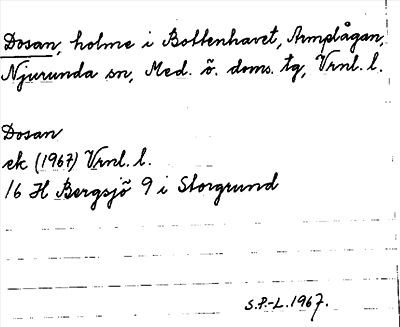 Dosan, holme i Bottenhavet, Armplågan,
Njurunda sn, Med. ö. doms. tg, Vrnl. l.
Dosan
ek (1967) Vrnl. l.
16 H Bergsjö 9 i Storgrund
S.P.-L. 1967.